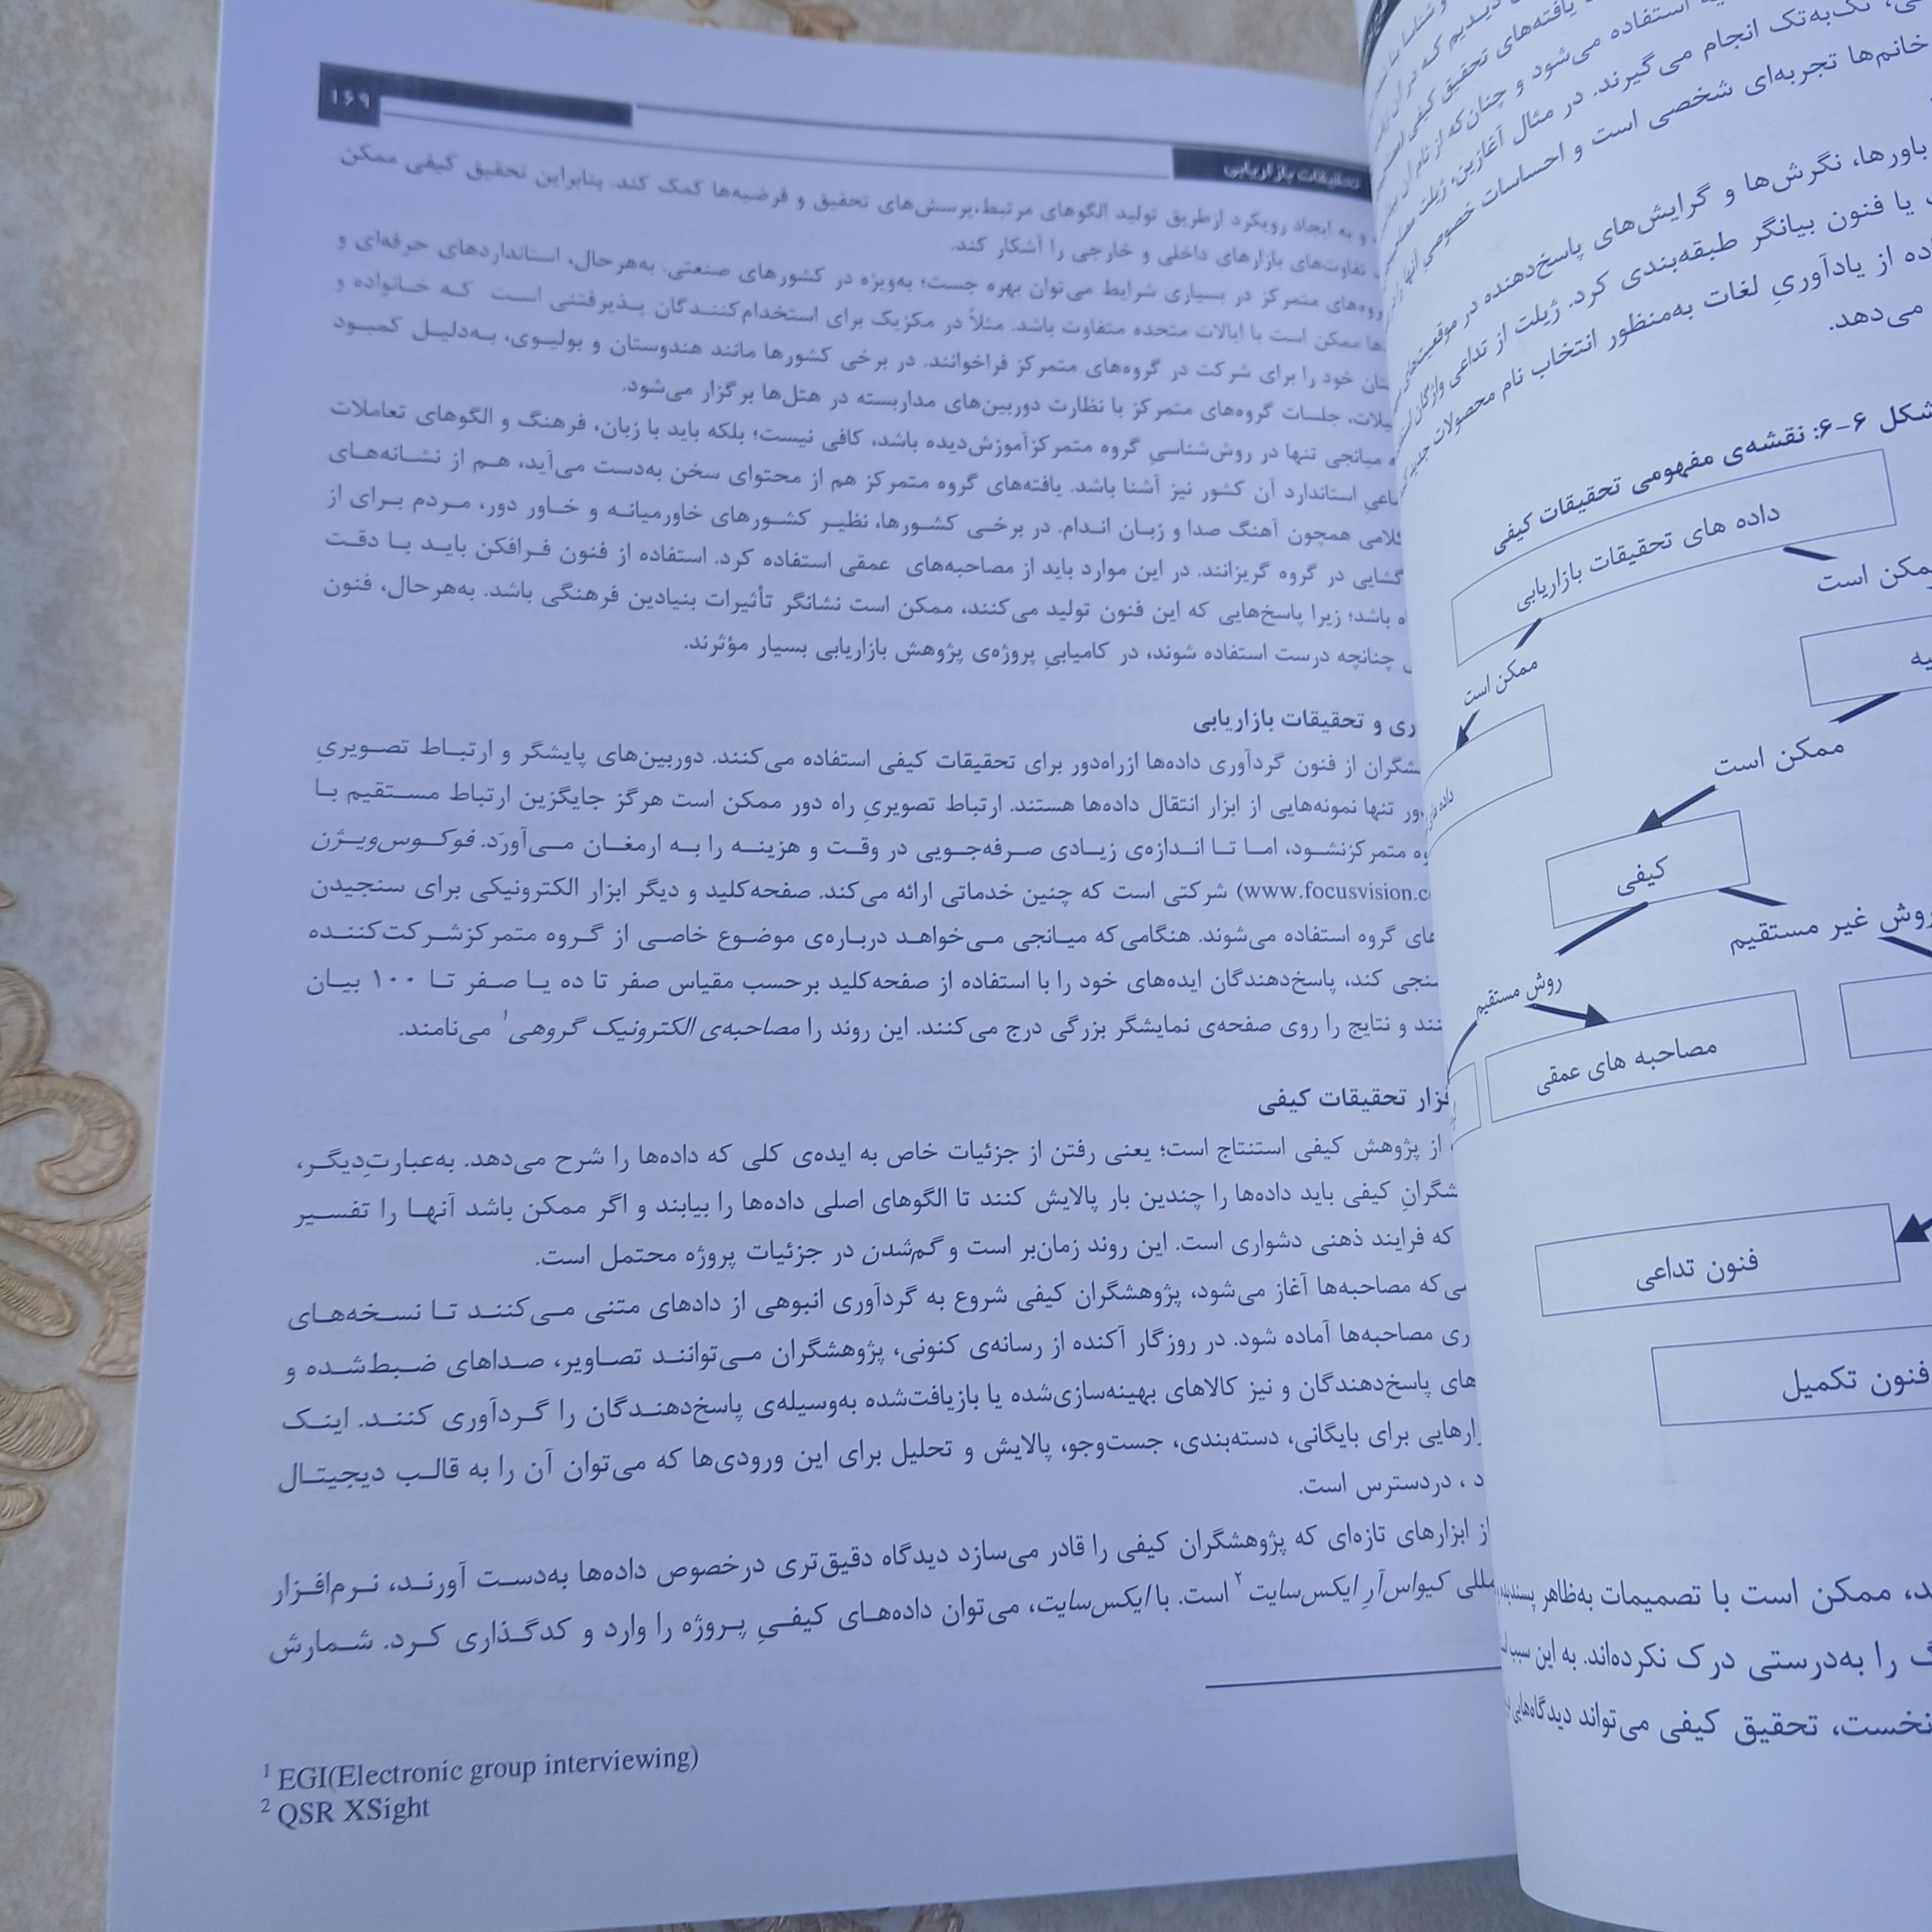 دیدیم که در آن
یافته‌های تحقیق کیفی
استفاده می‌شود و چنان‌که از نام آن
تک‌به‌تک انجام می‌گیرند. در مثال آغازین، ژیلت
خانم‌ها تجربه‌ای شخصی است و احساسات خصوصی آنها را
باورها، نگرش‌ها و گرایش‌های پاسخ‌دهنده در موقعیت‌های
یا فنون بیانگر طبقه‌بندی کرد. ژیلت از تداعی واژگان
از یادآوریِ لغات به‌منظور انتخاب نام محصولات جدید
می‌دهد.
شکل ۶-۶: نقشه‌ی مفهومی تحقیقات کیفی
داده های تحقیقات بازاریابی
ممکن است
ممکن است
ممکن است
کیفی
روش غیر مستقیم
روش مستقیم
مصاحبه های عمقی
فنون تداعی
فنون تکمیل
ممکن است با تصمیمات به‌ظاهر
را به‌درستی درک نکرده‌اند. به این سبب
نخست، تحقیق کیفی می‌تواند دیدگاه‌هایی
۱۶۹
تحقیقات بازاریابی
و به ایجاد رویکرد ازطریق تولید الگوهای مرتبط،پرسش‌های تحقیق و فرضیه‌ها کمک کند. بنابراین تحقیق کیفی ممکن
تفاوت‌های بازارهای داخلی و خارجی را آشکار کند.
متمرکز در بسیاری شرایط می‌توان بهره جست؛ به‌ویژه در کشورهای صنعتی. به‌هرحال، استانداردهای حرفه‌ای و
ممکن است با ایالات متحده متفاوت باشد. مثلاً در مکزیک برای استخدام‌کنندگان پذیرفتنی است که خانواده و
خود را برای شرکت در گروه‌های متمرکز فراخوانند. در برخی کشورها مانند هندوستان و بولیوی، به‌دلیل کمبود
جلسات گروه‌های متمرکز با نظارت دوربین‌های مداربسته در هتل‌ها برگزار می‌شود.
میانجی تنها در روش‌شناسیِ گروه متمرکزآموزش‌دیده باشد، کافی نیست؛ بلکه باید با زبان، فرهنگ و الگوهای تعاملات
استاندارد آن کشور نیز آشنا باشد. یافته‌های گروه متمرکز هم از محتوای سخن به‌دست می‌آید، هم از نشانه‌های
همچون آهنگ صدا و زبان اندام. در برخی کشورها، نظیر کشورهای خاورمیانه و خاور دور، مردم برای از
در گروه گریزانند. در این موارد باید از مصاحبه‌های عمقی استفاده کرد. استفاده از فنون فرافکن باید با دقت
باشد؛ زیرا پاسخ‌هایی که این فنون تولید می‌کنند، ممکن است نشانگر تأثیرات بنیادین فرهنگی باشد. به‌هرحال، فنون
چنانچه درست استفاده شوند، در کامیابیِ پروژه‌ی پژوهش بازاریابی بسیار مؤثرند.
و تحقیقات بازاریابی
از فنون گردآوری داده‌ها ازراه‌دور برای تحقیقات کیفی استفاده می‌کنند. دوربین‌های پایشگر و ارتباط تصویریِ
تنها نمونه‌هایی از ابزار انتقال داده‌ها هستند. ارتباط تصویریِ راه دور ممکن است هرگز جایگزین ارتباط مستقیم با
متمرکزنشود، اما تا اندازه‌ی زیادی صرفه‌جویی در وقت و هزینه را به ارمغان می‌آورَد. فوکوس‌ویژن
(www.focusvision.c شرکتی است که چنین خدماتی ارائه می‌کند. صفحه‌کلید و دیگر ابزار الکترونیکی برای سنجیدن
گروه استفاده می‌شوند. هنگامی‌که میانجی می‌خواهد درباره‌ی موضوع خاصی از گروه متمرکزشرکت‌کننده
کند، پاسخ‌دهندگان ایده‌های خود را با استفاده از صفحه‌کلید برحسب مقیاس صفر تا ده یا صفر تا ۱۰۰ بیان
و نتایج را روی صفحه‌ی نمایشگر بزرگی درج می‌کنند. این روند را مصاحبه‌ی الکترونیک گروهی۱ می‌نامند.
تحقیقات کیفی
از پژوهش کیفی استنتاج است؛ یعنی رفتن از جزئیات خاص به ایده‌ی کلی که داده‌ها را شرح می‌دهد. به‌عبارتِ‌دیگر،
کیفی باید داده‌ها را چندین بار پالایش کنند تا الگوهای اصلی داده‌ها را بیابند و اگر ممکن باشد آنها را تفسیر
که فرایند ذهنی دشواری است. این روند زمان‌بر است و گم‌شدن در جزئیات پروژه محتمل است.
که مصاحبه‌ها آغاز می‌شود، پژوهشگران کیفی شروع به گردآوری انبوهی از دادهای متنی می‌کنند تا نسخه‌های
مصاحبه‌ها آماده شود. در روزگار آکنده از رسانه‌ی کنونی، پژوهشگران می‌توانند تصاویر، صداهای ضبط‌شده و
پاسخ‌دهندگان و نیز کالاهای بهینه‌سازی‌شده یا بازیافت‌شده به‌وسیله‌ی پاسخ‌دهندگان را گردآوری کنند. اینک
برای بایگانی، دسته‌بندی، جست‌وجو، پالایش و تحلیل برای این ورودی‌ها که می‌توان آن را به قالب دیجیتال
، دردسترس است.
از ابزارهای تازه‌ای که پژوهشگران کیفی را قادر می‌سازد دیدگاه دقیق‌تری درخصوص داده‌ها به‌دست آورند، نرم‌افزار
کیواس‌آرِ ایکس‌سایت۲ است. با ایکس‌سایت، می‌توان داده‌های کیفیِ پروژه را وارد و کدگذاری کرد. شمارش
1 EGI(Electronic group interviewing)
2 QSR XSight